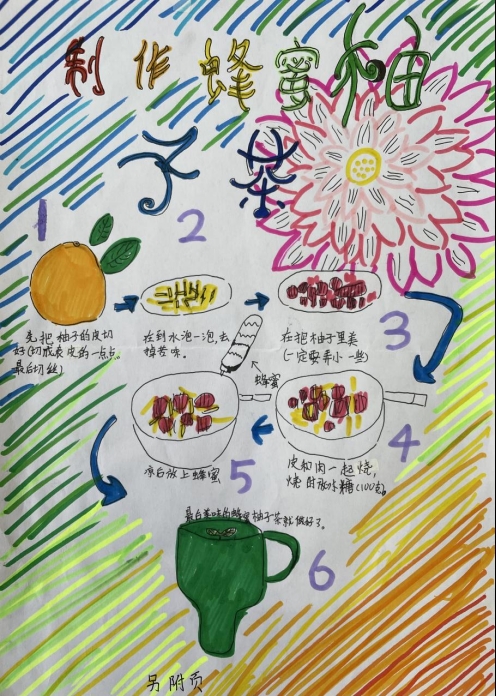 制作蜂蜜柚
子茶
1
2
先把柚子的皮切
好(切成表皮的一点点
最后切丝)
在到水泡一泡,去
掉苦味。
在把柚子里美
(一定要弄小一些)
3
蜂蜜
皮和肉一起烧,
烧时放冰糖(100克)
4
凉后放上蜂蜜
5
最后美味的蜂蜜柚子茶就做好了。
6
另附页